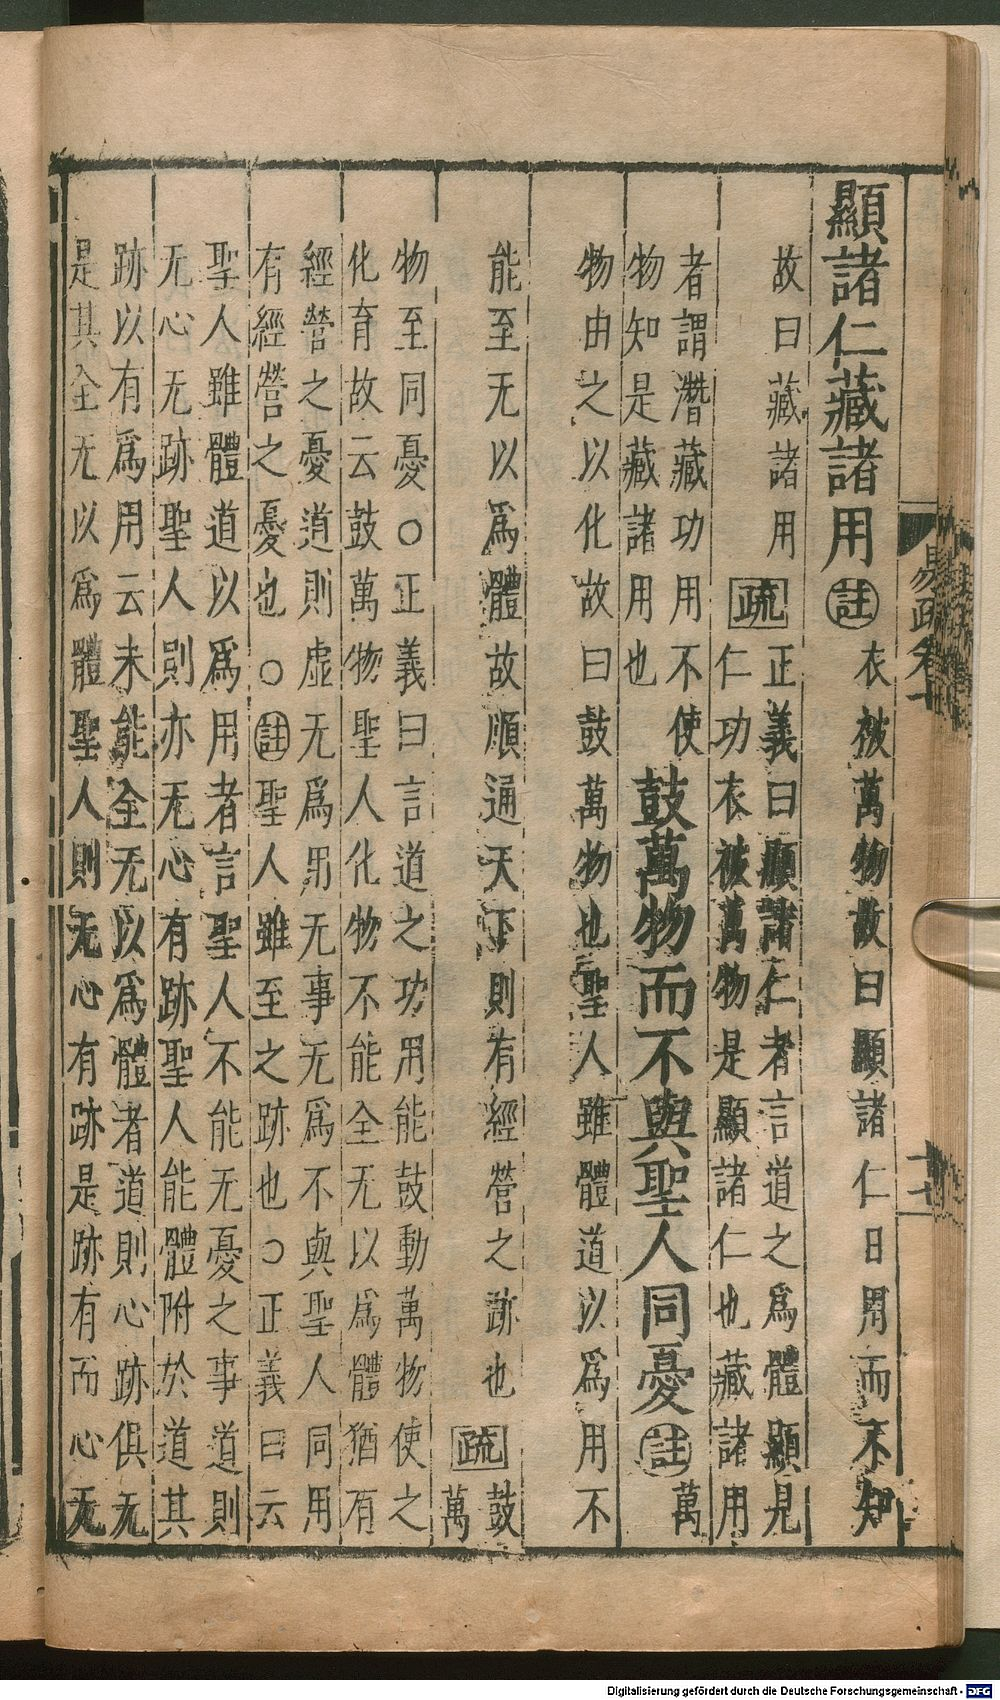 顯諸仁藏諸用註衣被萬物故曰顯諸仁日用而不知
故曰藏諸用疏正義曰顯諸仁者言道之爲體顯見
仁功衣被萬物是顯諸仁也藏諸用
者謂潛藏功用不使
物知是藏諸用也
鼓萬物而不與聖人同憂註萬
物由之以化故曰鼓萬物也聖人雖體道以爲用不
能至无以爲體故順通天下則有經營之跡也疏鼓
萬
物至同憂○正義曰言道之功用能鼓動萬物使之
化育故云鼓萬物聖人化物不能全无以爲體猶有
經營之憂道則虛无爲用无事无爲不與聖人同用
有經營之憂也○註聖人雖至之跡也○正義曰云
聖人雖體道以爲用者言聖人不能无憂之事道則
无心无跡聖人則亦无心有跡聖人能體附於道其
跡以有爲用云未能全无以爲體者道則心跡俱无
是其全无以爲體聖人則无心有跡是跡有而心无
易疏卷
Digitalisierung gefördert durch die Deutsche Forschungsgemeinschaft - DFG